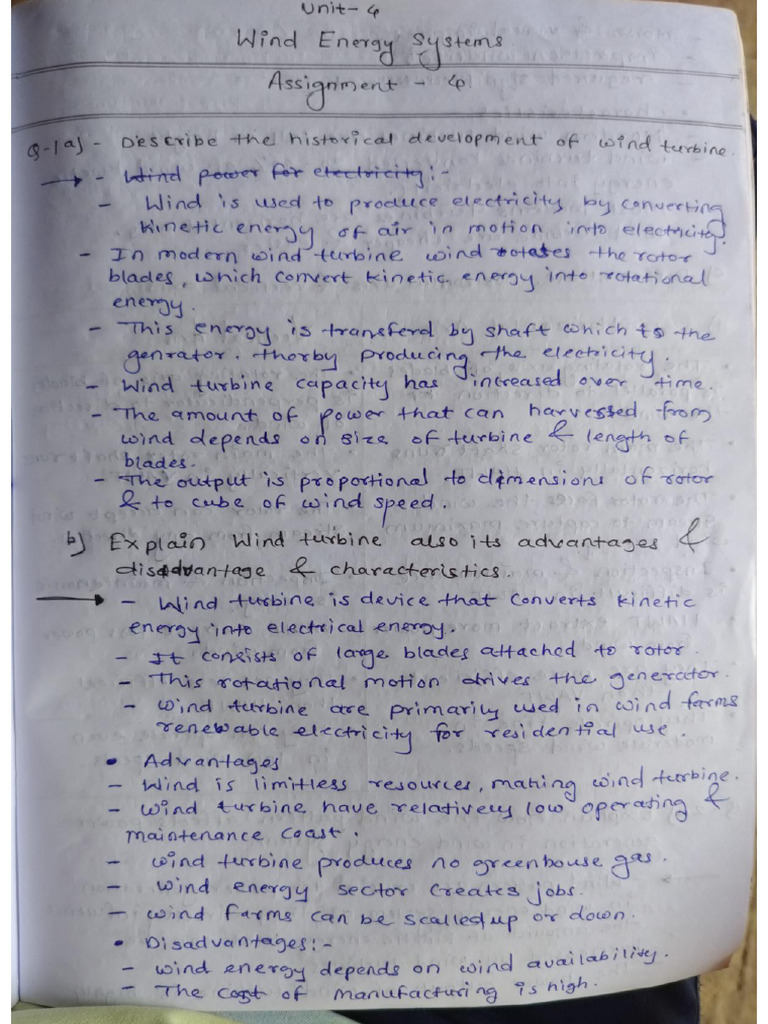 Unit- 4
Wind Energy Systems
Assignment - 4
Q-1a) - Describe the historical development of wind turbine.
- Wind power for electricity:-
- Wind is used to produce electricity by converting
kinetic energy of air in motion into electricity.
- In modern wind turbine wind rotates the rotor
blades, which convert kinetic energy into rotational
energy.
- This energy is transferd by shaft which to the
genrator. thorby producing the electricity.
- Wind turbine capacity has increased over time.
- The amount of power that can harvested from
wind depends on size of turbine & length of
blades.
- The output is proportional to dimensions of rotor
& to cube of wind speed.
b) Explain Wind turbine also its advantages &
disadvantage & characteristics.
- Wind turbine is device that converts kinetic
energy into electrical energy.
- It consists of large blades attached to rotor.
- This rotational motion drives the generator.
- Wind turbine are primarily used in wind farms
renewable electricity for residential use.
• Advantages
- Wind is limitless resources, making wind turbine.
- Wind turbine have relatively low operating &
maintenance coast.
- wind turbine produces no greenhouse gas.
- Wind energy sector creates jobs.
- wind farms can be scalledup or down.
• Disadvantages:-
- wind energy depends on wind availability.
- The cost of manufacturing is high.